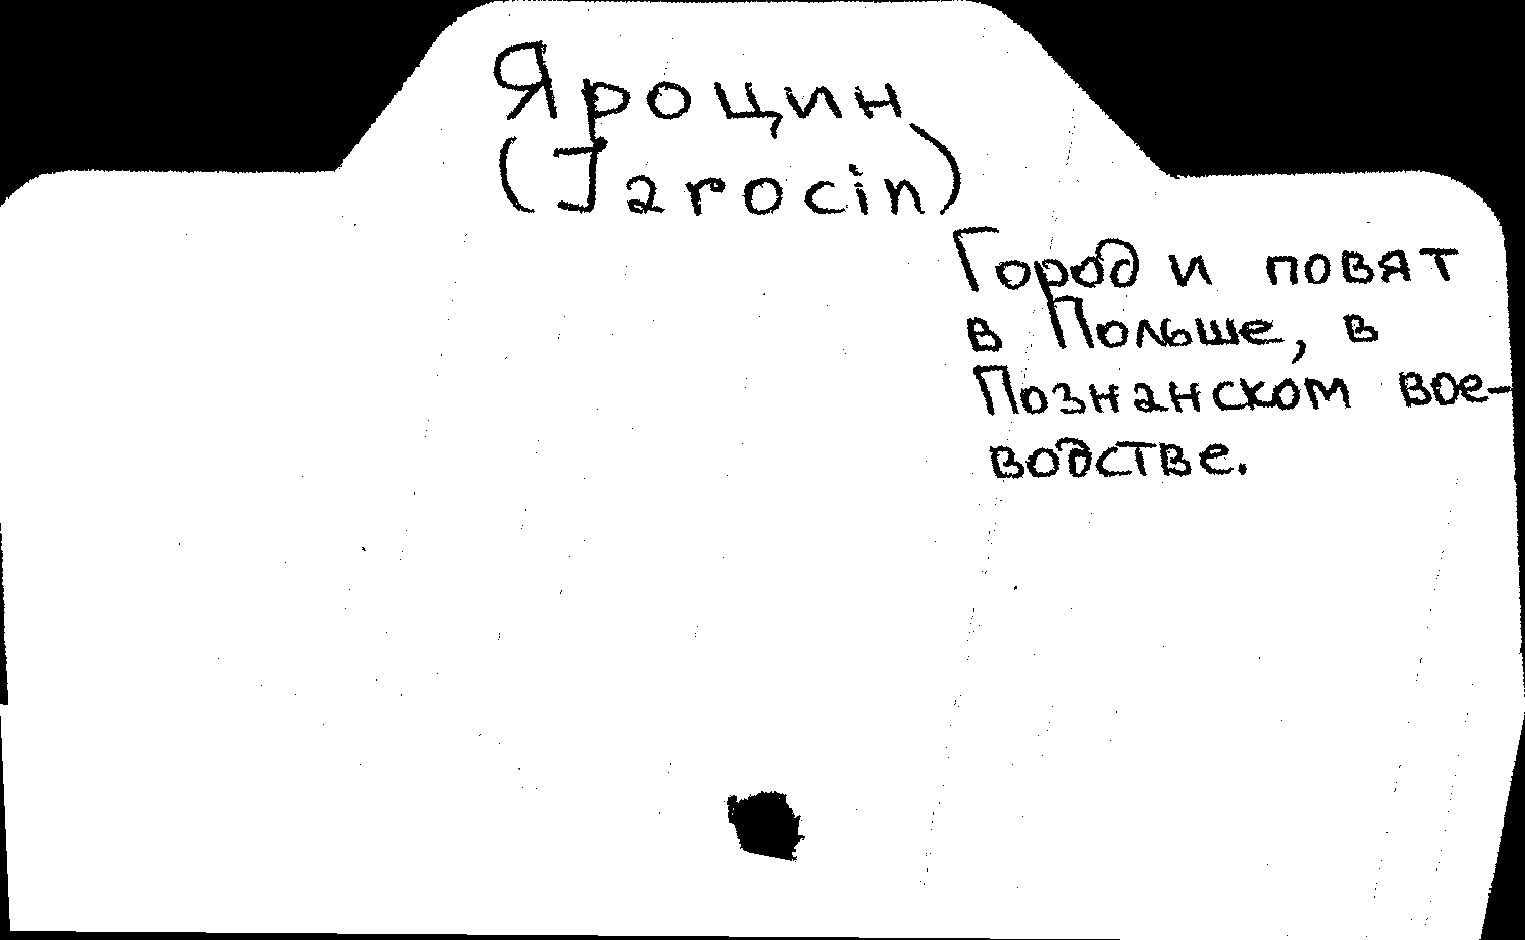 Яроцин
(Jarocin)
Город и повят
в Польше, в
Познанском вое-
водстве.